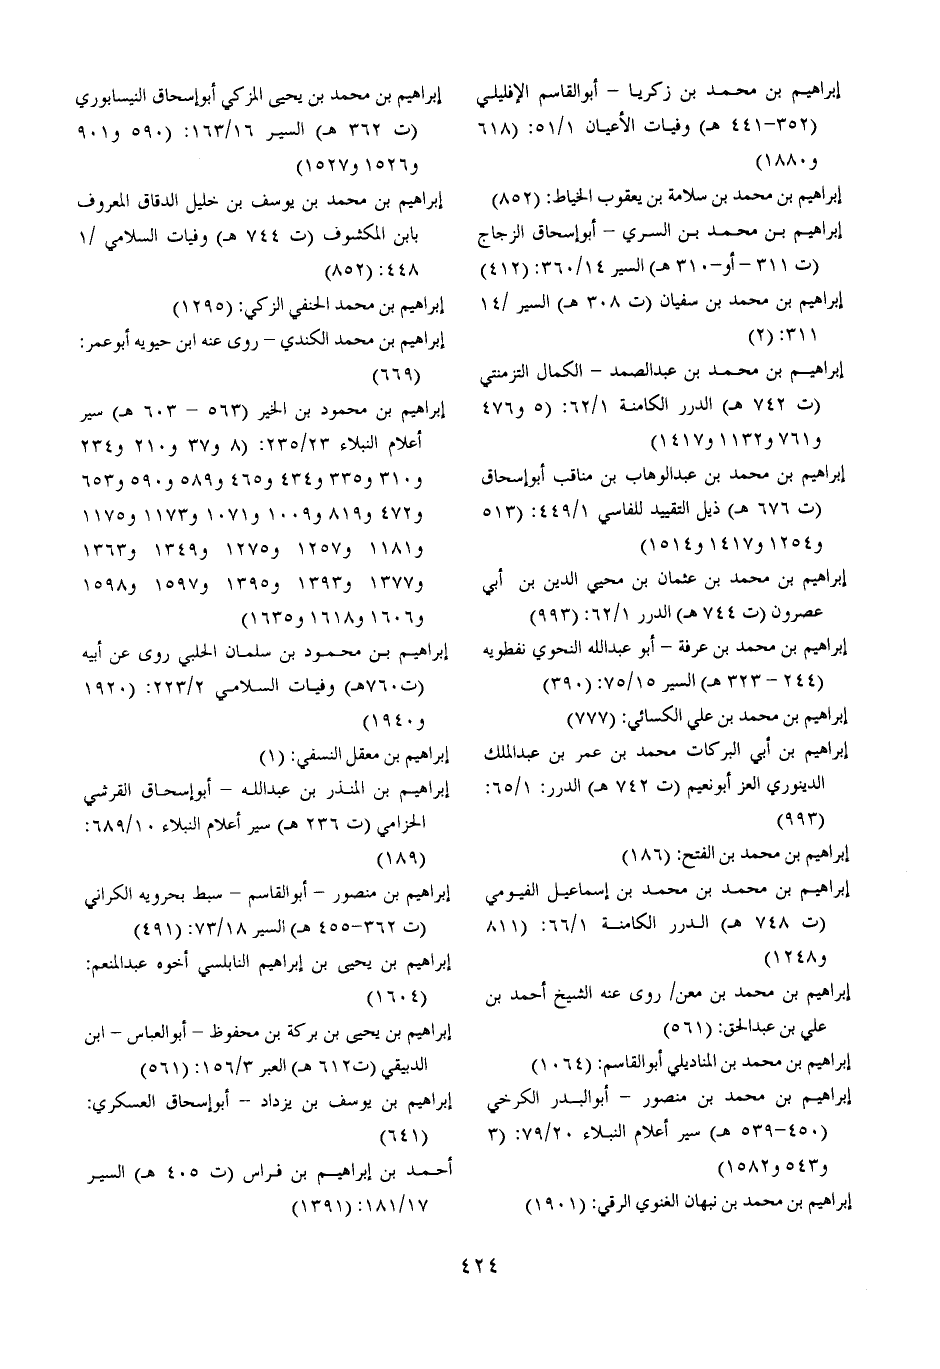 إبراهيم بن محمد بن زكريا – أبوالقاسم الإفليلي
(٣٥٢–٤٤١ هـ) وفيات الأعيان ٥١/١: (٦١٨
و١٨٨٠)
إبراهيم بن محمد بن سلامة بن يعقوب الخياط: (٨٥٢)
إبراهيم بن محمد بن السري – أبوإسحاق الزجاج
(ت ٣١١ –أو–٣١٠ هـ) السير ٣٦٠/١٤: (٤١٢)
إبراهيم بن محمد بن سفيان (ت ٣٠٨ هـ) السير /١٤
٣١١: (٢)
إبراهيم بن محمد بن عبدالصمد – الكمال التزمنتي
(ت ٧٤٢ هـ) الدرر الكامنة ٦٢/١: (٥ و٤٧٦
و٧٦١ و١١٣٢ و١٤١٧)
إبراهيم بن محمد بن عبدالوهاب بن مناقب أبوإسحاق
(ت ٦٧٦ هـ) ذيل التقييد للفاسي ٤٤٩/١: (٥١٣
و١٢٥٤ و١٤١٧ و١٥١٤)
إبراهيم بن محمد بن عثمان بن محيي الدين بن أبي
عصرون (ت ٧٤٤ هـ) الدرر ٦٢/١: (٩٩٣)
إبراهيم بن محمد بن عرفة – أبو عبدالله النحوي نفطويه
(٢٤٤ – ٣٢٣ هـ) السير ٧٥/١٥: (٣٩٠)
إبراهيم بن محمد بن علي الكسائي: (٧٧٧)
إبراهيم بن أبي البركات محمد بن عمر بن عبدالملك
الدينوري العز أبونعيم (ت ٧٤٢ هـ) الدرر: ٦٥/١:
(٩٩٣)
إبراهيم بن محمد بن الفتح: (١٨٦)
إبراهيم بن محمد بن محمد بن إسماعيل الفيومي
(ت ٧٤٨ هـ) الدرر الكامنة ٦٦/١: (٨١١
و١٢٤٨)
إبراهيم بن محمد بن معن/ روى عنه الشيخ أحمد بن
علي بن عبدالحق: (٥٦١)
إبراهيم بن محمد بن المناديلي أبوالقاسم: (١٠٦٤)
إبراهيم بن محمد بن منصور – أبوالبدر الكرخي
(٤٥٠–٥٣٩ هـ) سير أعلام النبلاء ٧٩/٢٠: (٣
و٥٤٣ و١٥٨٢)
إبراهيم بن محمد بن نبهان الغنوي الرقي: (١٩٠١)
إبراهيم بن محمد بن يحيى المزكي أبوإسحاق النيسابوري
(ت ٣٦٢ هـ) السير ١٦٣/١٦: (٥٩٠ و٩٠١
و١٥٢٦ و١٥٢٧)
إبراهيم بن محمد بن يوسف بن خليل الدقاق المعروف
بابن المكشوف (ت ٧٤٤ هـ) وفيات السلامي /١
٤٤٨: (٨٥٢)
إبراهيم بن محمد الحنفي الزكي: (١٢٩٥)
إبراهيم بن محمد الكندي – روى عنه ابن حيويه أبوعمر:
(٦٦٩)
إبراهيم بن محمود بن الخير (٥٦٣ – ٦٠٣ هـ) سير
أعلام النبلاء ٢٣٥/٢٣: (٨ و٣٧ و٢١٠ و٢٣٤
و٣١٠ و٣٣٥ و٤٣٤ و٤٦٥ و٥٨٩ و٥٩٠ و٦٥٣
و٤٧٢ و٨١٩ و١٠٠٩ و١٠٧١ و١١٧٣ و١١٧٥
و١١٨١ و١٢٥٧ و١٢٧٥ و١٣٤٩ و١٣٦٣
و١٣٧٧ و١٣٩٣ و١٣٩٥ و١٥٩٧ و١٥٩٨
و١٦٠٦ و١٦١٨ و١٦٣٥)
إبراهيم بن محمود بن سلمان الحلبي روى عن أبيه
(ت٧٦٠هـ) وفيات السلامي ٢٢٣/٢: (١٩٢٠
و١٩٤٠)
إبراهيم بن معقل النسفي: (١)
إبراهيم بن المنذر بن عبدالله – أبوإسحاق القرشي
الحزامي (ت ٢٣٦ هـ) سير أعلام النبلاء ٦٨٩/١٠:
(١٨٩)
إبراهيم بن منصور – أبوالقاسم – سبط بحرويه الكراني
(ت ٣٦٢–٤٥٥ هـ) السير ٧٣/١٨: (٤٩١)
إبراهيم بن يحيى بن إبراهيم النابلسي أخوه عبدالمنعم:
(١٦٠٤)
إبراهيم بن يحيى بن بركة بن محفوظ – أبوالعباس – ابن
الدبيقي (ت٦١٢ هـ) العبر ١٥٦/٣: (٥٦١)
إبراهيم بن يوسف بن يزداد – أبوإسحاق العسكري:
(٦٤١)
أحمد بن إبراهيم بن فراس (ت ٤٠٥ هـ) السير
١٨١/١٧: (١٣٩١)
٤٢٤